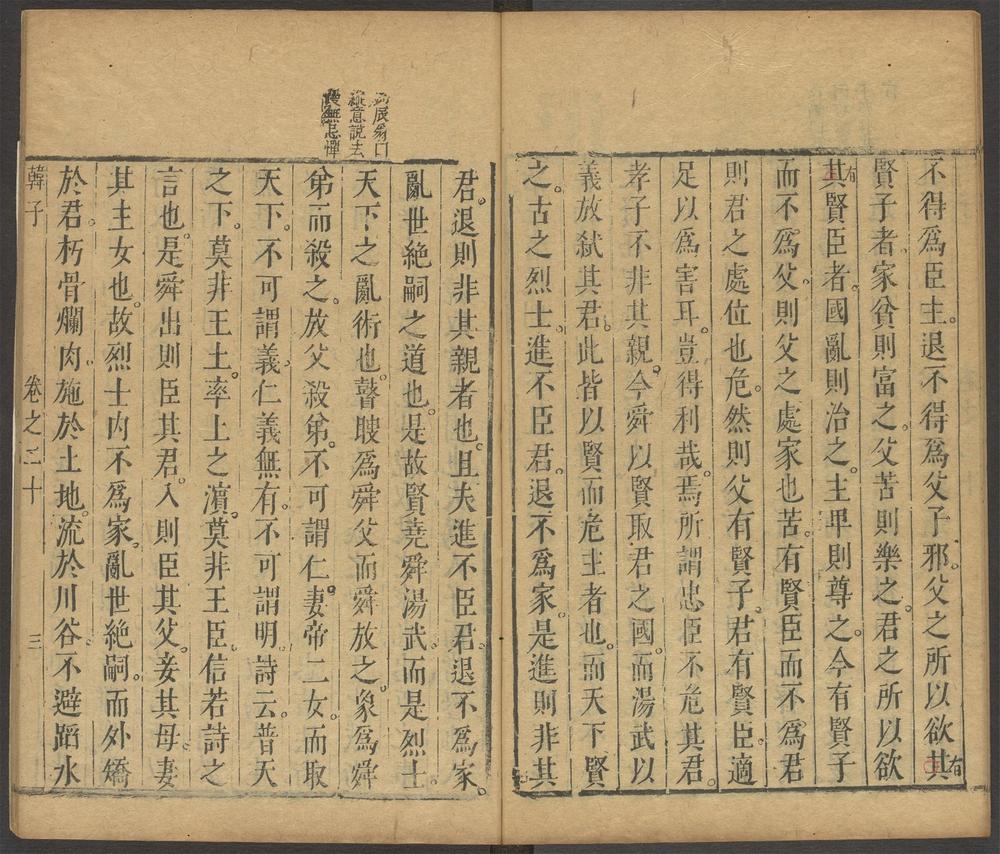 不得爲臣主退不得爲父子邪父之所以欲其
有
賢子者家貧則富之父苦則樂之君之所以欲
其賢臣者國亂則治之主卑則尊之今有賢子
有
而不爲父則父之處家也苦有賢臣而不爲君
則君之處位也危然則父有賢子君有賢臣適
足以爲害耳豈得利哉焉所謂忠臣不危其君
孝子不非其親今舜以賢取君之國而湯武以
義放弑其君此皆以賢而危主者也而天下賢
之古之烈士進不臣君退不爲家是進則非其
君退則非其親者也且夫進不臣君退不爲家
亂世絶嗣之道也是故賢堯舜湯武而是烈士
天下之亂術也瞽瞍爲舜父而舜放之象爲舜
弟而殺之放父殺弟不可謂仁妻帝二女而取
天下不可謂義仁義無有不可謂明詩云普天
之下莫非王土率土之濵莫非王臣信若詩之
言也是舜出則臣其君入則臣其父妾其母妻
其主女也故烈士内不爲家亂世絶嗣而外矯
於君朽骨爛肉施於土地流於川谷不避蹈水
展易口
意說去
無忌憚
韓子
卷之二十
三